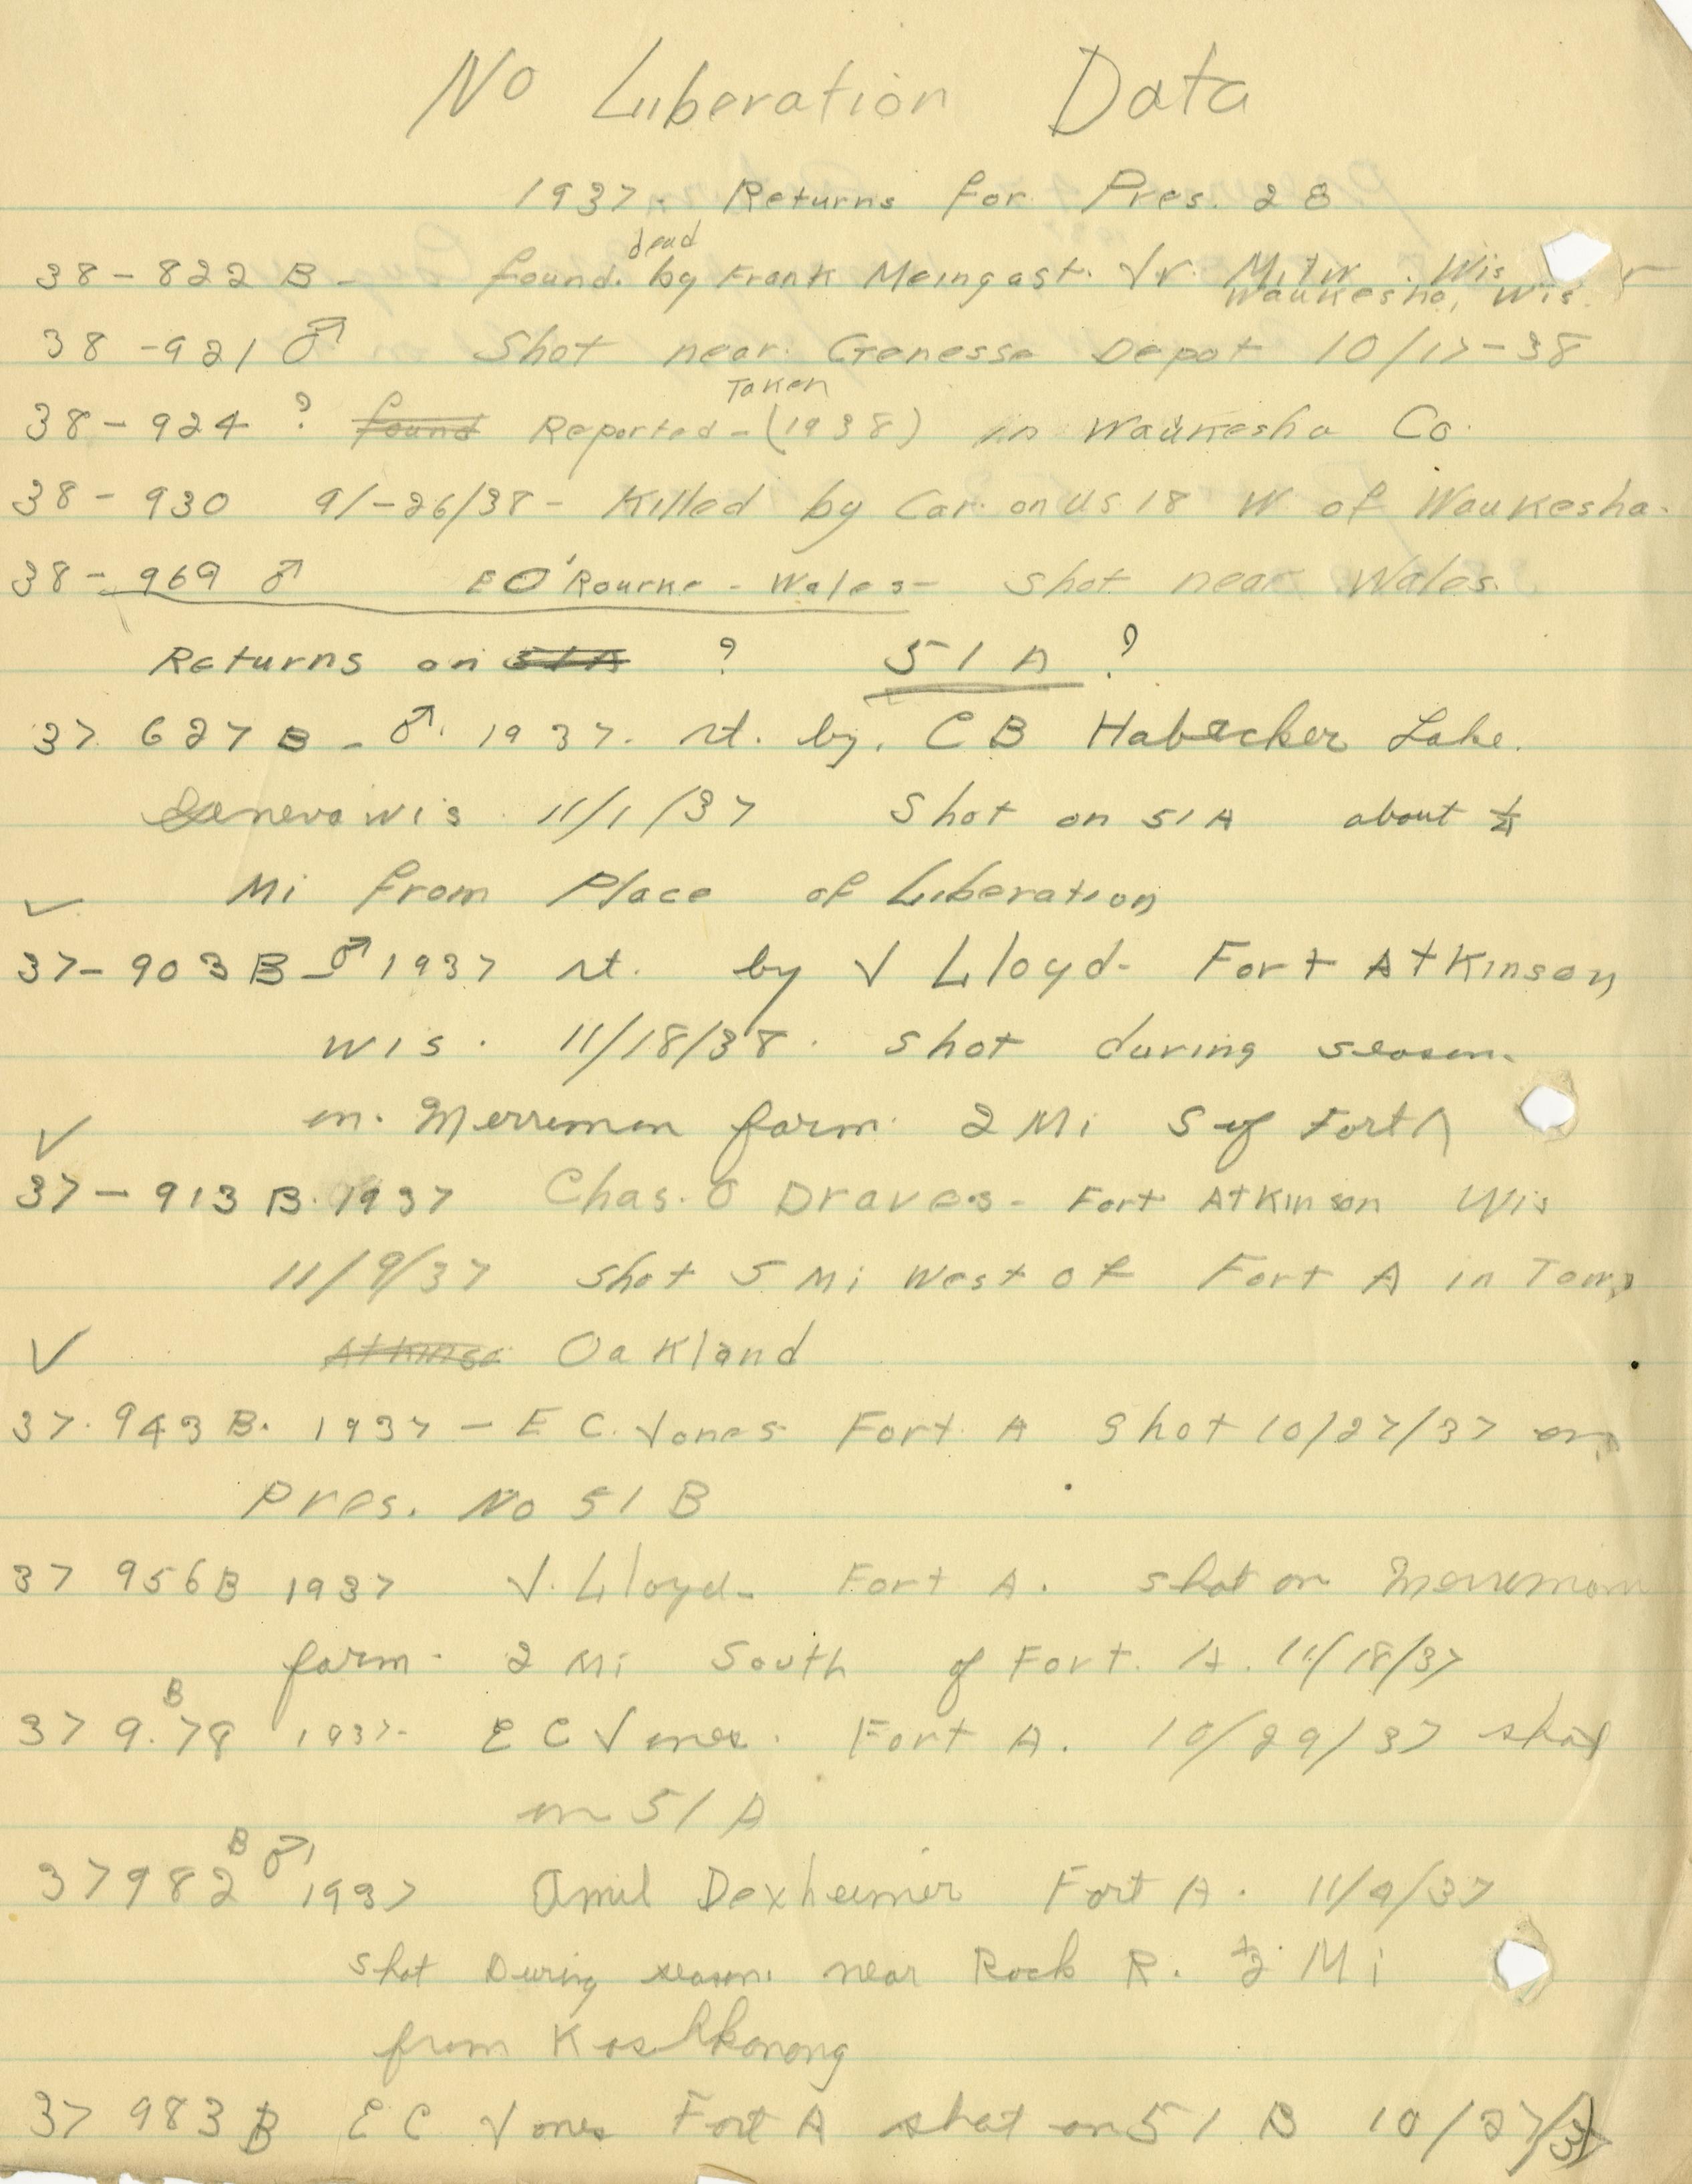 No Liberation Data
1937 - Returns for Pres. 28
dead
38-822 B - found by Frank Meingast. Jr. Milw. Wis
Waukesha, Wis.
38-921 ♂ Shot near Genesse Depot 10/17-38
Taken
38-924 ? found Reported - (1938) in Waukesha Co.
38-930 9/-26/38- Killed by Car on US 18 W of Waukesha.
38-969 ♂ E O'Rourke - Wales - Shot near Wales.
Returns on 51A ? 51A ?
37 627 B - ♂. 1937. rt. by. C B Habecker Lake.
Geneva Wis 11/1/37 Shot on 51A about 1/4
Mi from Place of Liberation
✓
37-903 B - ♂ 1937 rt. by J Lloyd - Fort Atkinson
Wis. 11/18/38. Shot during season.
on. Merremon farm. 2 Mi S of Fort A
✓
37-913 B. 1937 Chas. O Draves - Fort Atkinson Wis
11/9/37 Shot 5 Mi West of Fort A in Town
✓ Atkinso Oakland
37. 943 B. 1937 - E C. Jones Fort A Shot 10/27/37 on
Pres. No 51 B
37 956B 1937 J. Lloyd - Fort A. shot on Merremon
farm - 2 Mi South of Fort. A. 11/18/37
B
37 9.78 1937- E C Jones. Fort A. 10/29/37 shot
on 51 A
B ♂
37982 1937 Amil Dexheimer Fort A. 11/9/37
Shot During season. near Rock R. 1/2 Mi
from Koshkonong
37 983 B E C Jones Fort A shot on 51 B 10/27/37